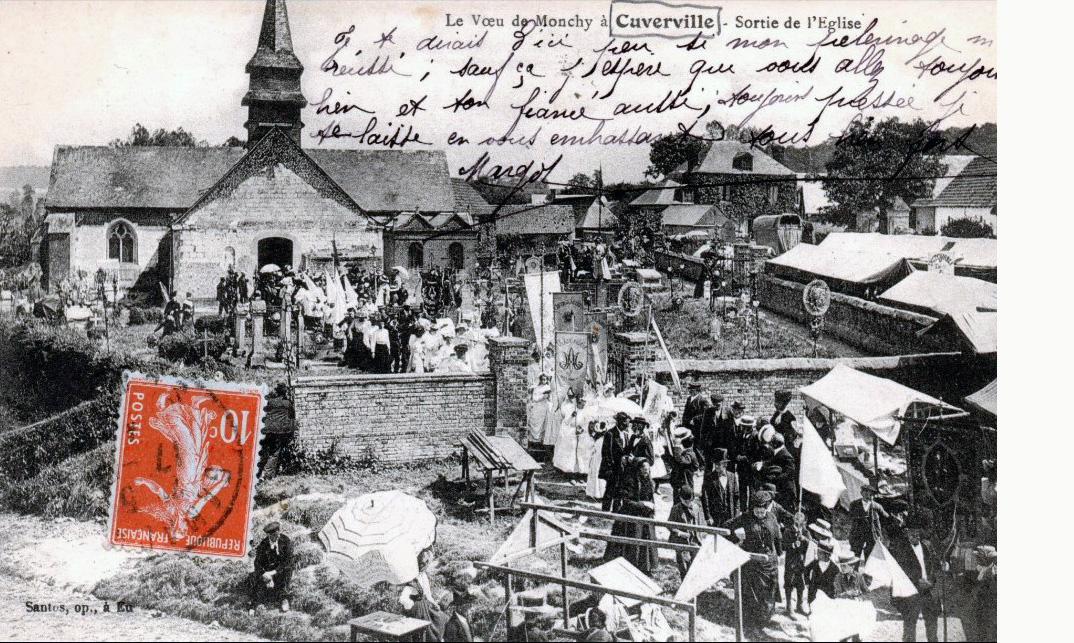 Le Vœu de Monchy à Cuverville - Sortie de l'Eglise
dirais d'ici peu si mon pelerinage
réussi ; sauf ça j'espère que vous allez toujou
bien et ton fiancé aussi ; toujours pressée je
te laisse en vous embrassant tous
Margot
10c
POSTES
REPUBLIQUE FRANÇAISE
Santos, op., à Eu